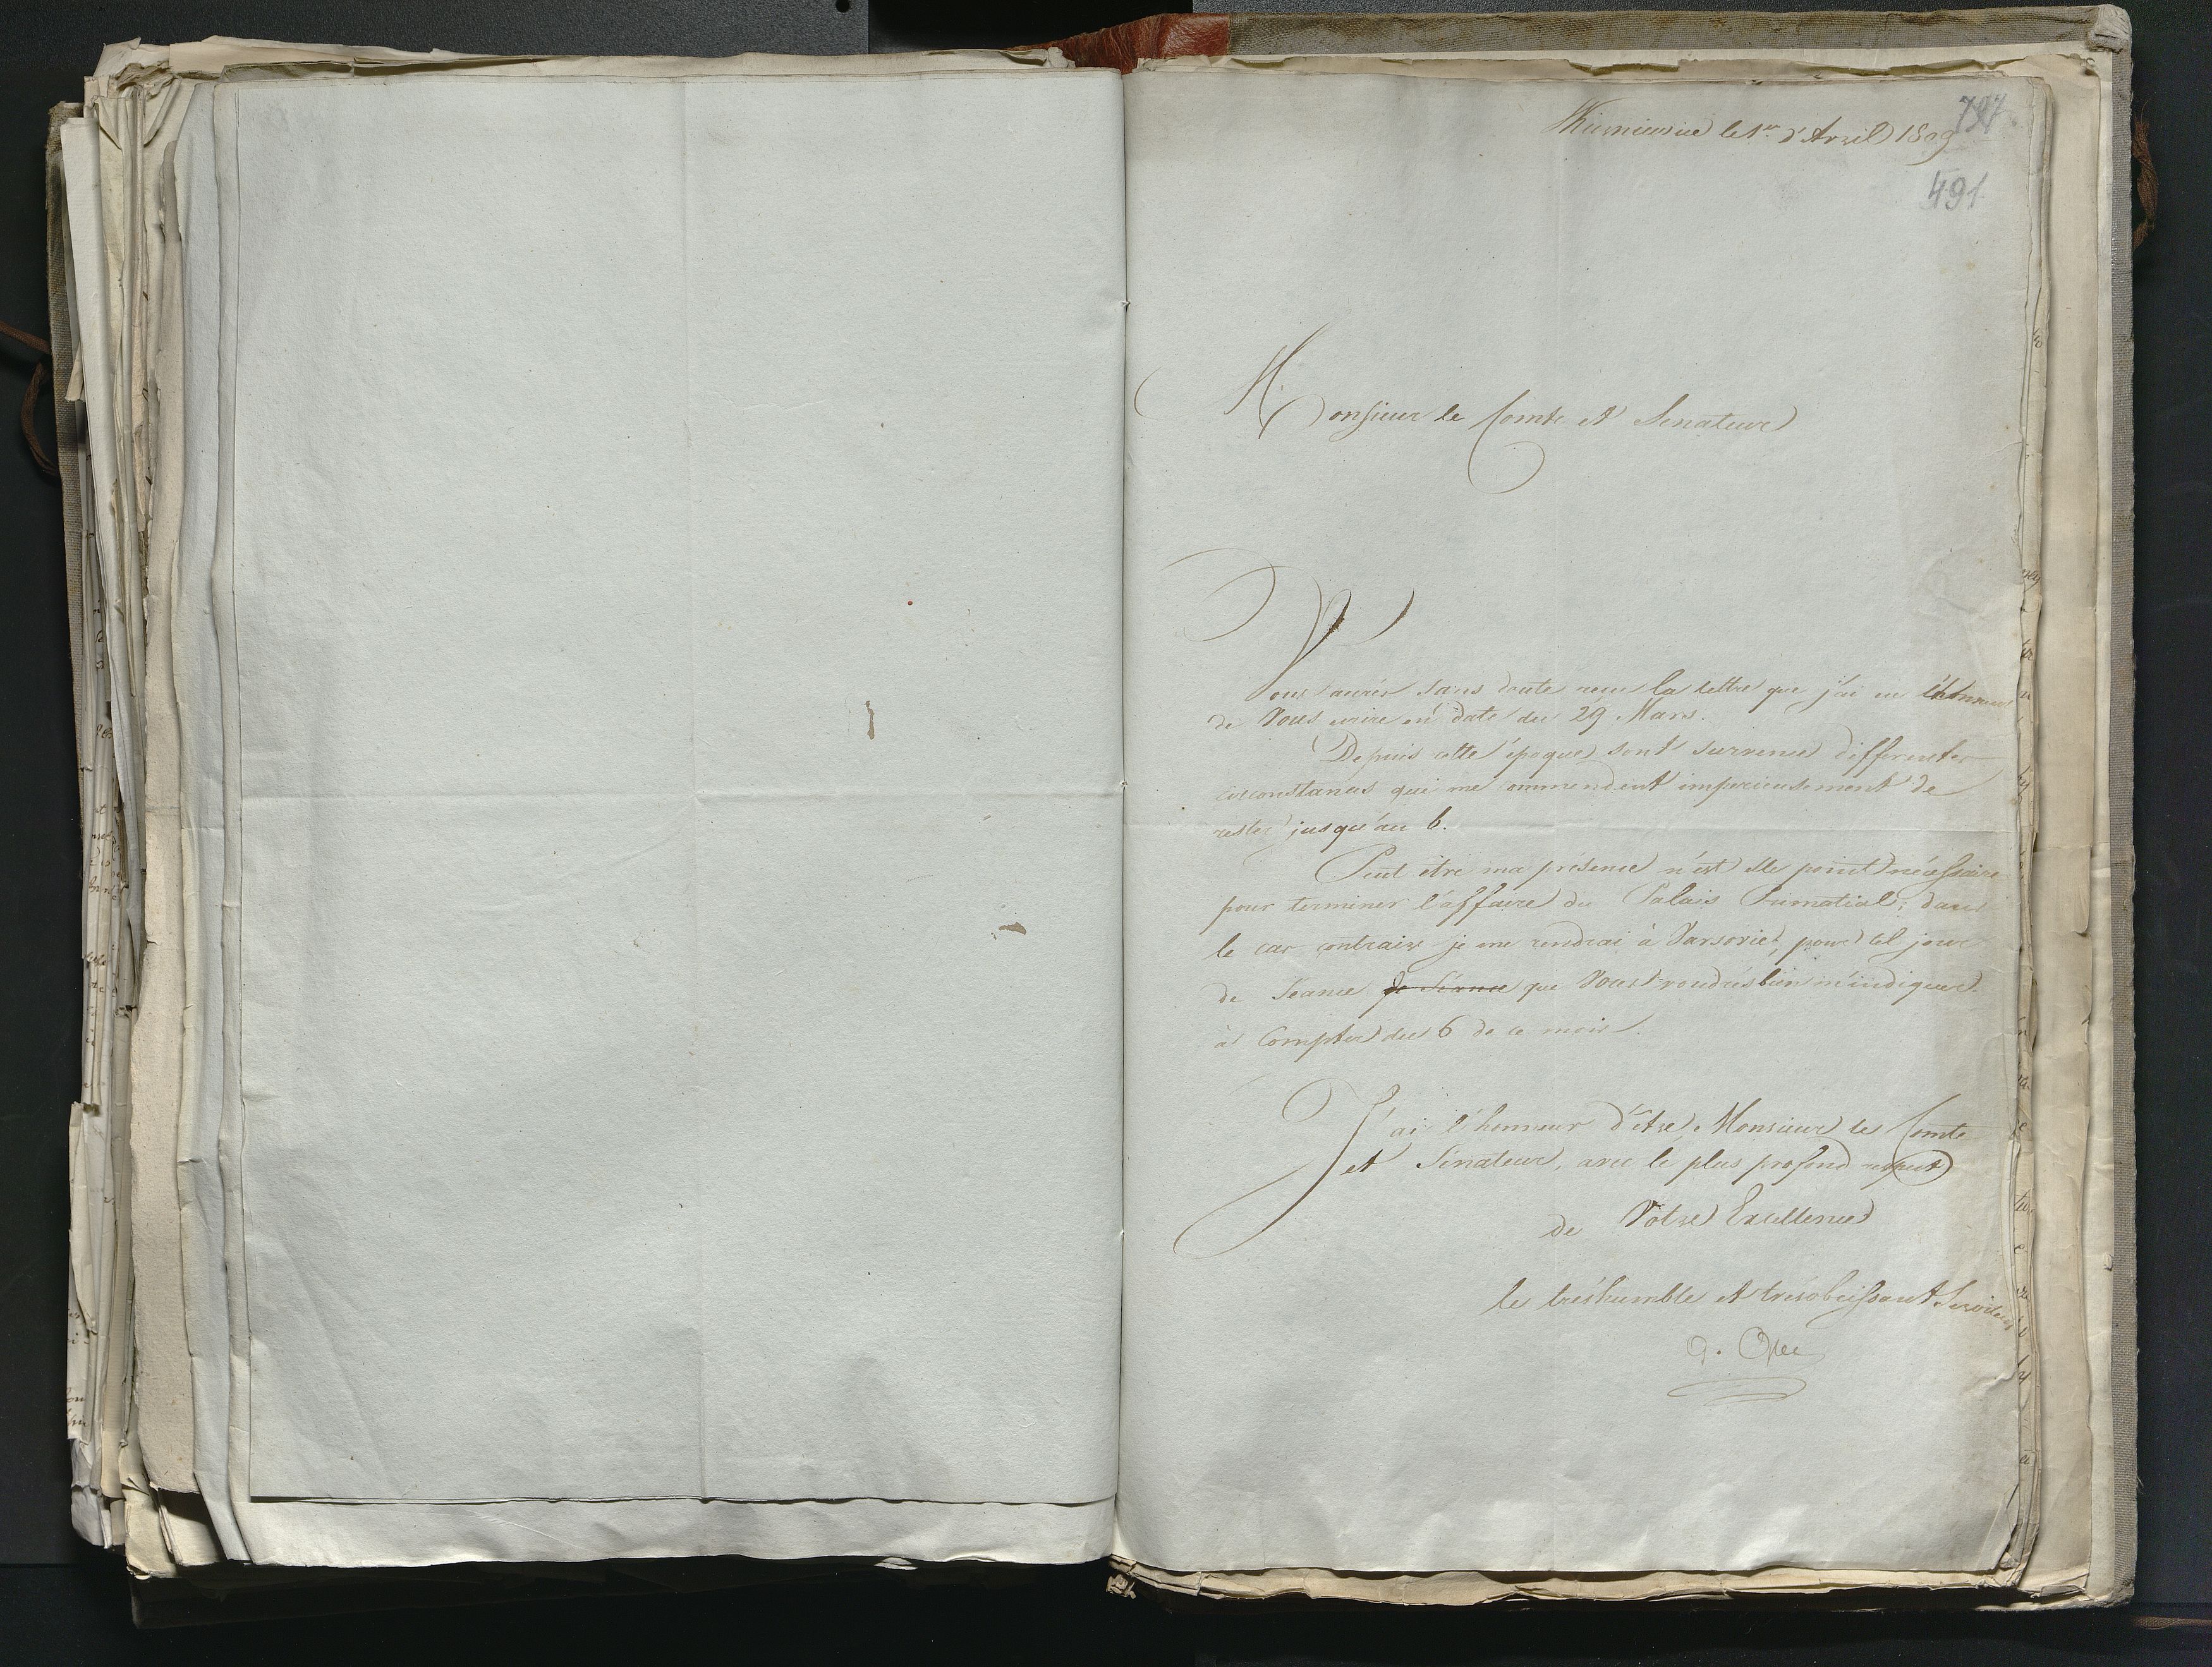 Skierniewice le 1er d'Avril 1809
491
Monsieur le Comte et Senateur
Vous aurés sans doute reçu la lettre que j'ai eu l'honneur
de Vous ecrire en date du 29 Mars.
Depuis cette époque sont survenus differentes
circonstances qui me commendent imperieusement de
rester jusqu'au 6.
Peut être ma présence n'est elle point nécessaire
pour terminer l'affaire du Palais Primatial; dans
le cas contraire je me rendrai à Varsovie, pour tel jour
de Séance de Séance que Vous voudrés bien m'indiquer
à Compter du 6 de ce mois.
J'ai l'honneur d'être, Monsieur le Comte
et Sénateur, avec le plus profond respect
de Votre Excellence
le tréshumble et trésobeissant Serviteur